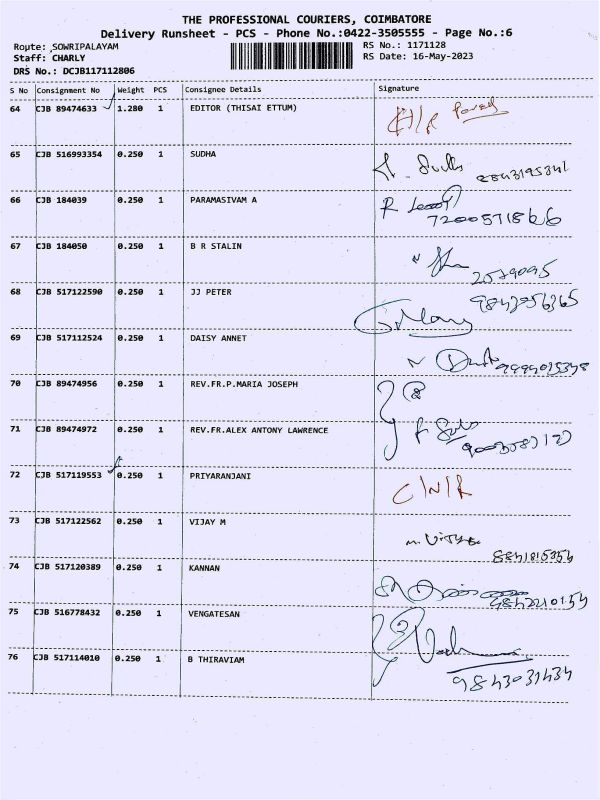 THE PROFESSIONAL COURIERS, COIMBATORE
Delivery Runsheet - PCS - Phone No.:0422-3505555 - Page No.:6
Route: SOWRIPALAYAM RS No.: 1171128
Staff: CHARLY RS Date: 16-May-2023
DRS No.: DCJB117112806
S No Consignment No Weight PCS Consignee Details Signature
64 CJB 89474633 1.280 1 EDITOR (THISAI ETTUM)
65 CJB 516993354 0.250 1 SUDHA
66 CJB 184039 0.250 1 PARAMASIVAM A
67 CJB 184050 0.250 1 B R STALIN
68 CJB 517122590 0.250 1 JJ PETER
69 CJB 517112524 0.250 1 DAISY ANNET
70 CJB 89474956 0.250 1 REV.FR.P.MARIA JOSEPH
71 CJB 89474972 0.250 1 REV.FR.ALEX ANTONY LAWRENCE
72 CJB 517119553 0.250 1 PRIYARANJANI C/N/R
73 CJB 517122562 0.250 1 VIJAY M
8841815354
74 CJB 517120389 0.250 1 KANNAN
9842210154
75 CJB 516778432 0.250 1 VENGATESAN
76 CJB 517114010 0.250 1 B THIRAVIAM
9843031434